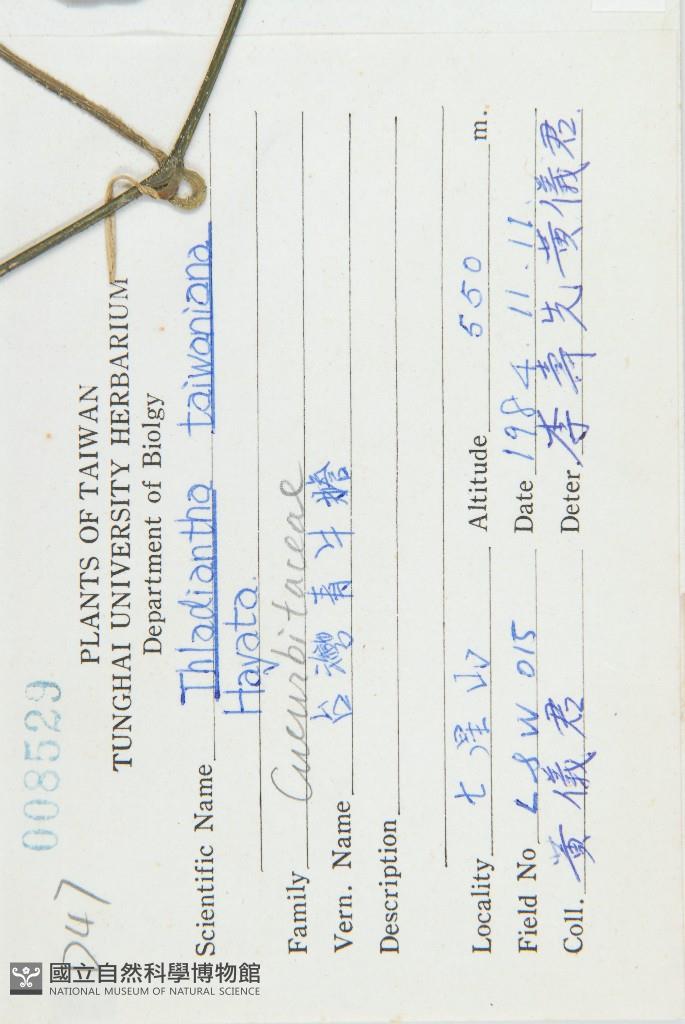 008529
D47
PLANTS OF TAIWAN
TUNGHAI UNIVERSITY HERBARIUM
Department of Biolgy
Scientific Name Thladiantha taiwaniana
Hayata.
Family Cucurbitaceae
Vern. Name 台灣青牛膽
Description
Locality 七星山 Altitude 550 m.
Field No LSW 015 Date 1984.11.11.
Coll. 黃儀君 Deter. 李壽先 黃儀君.
國立自然科學博物館
NATIONAL MUSEUM OF NATURAL SCIENCE